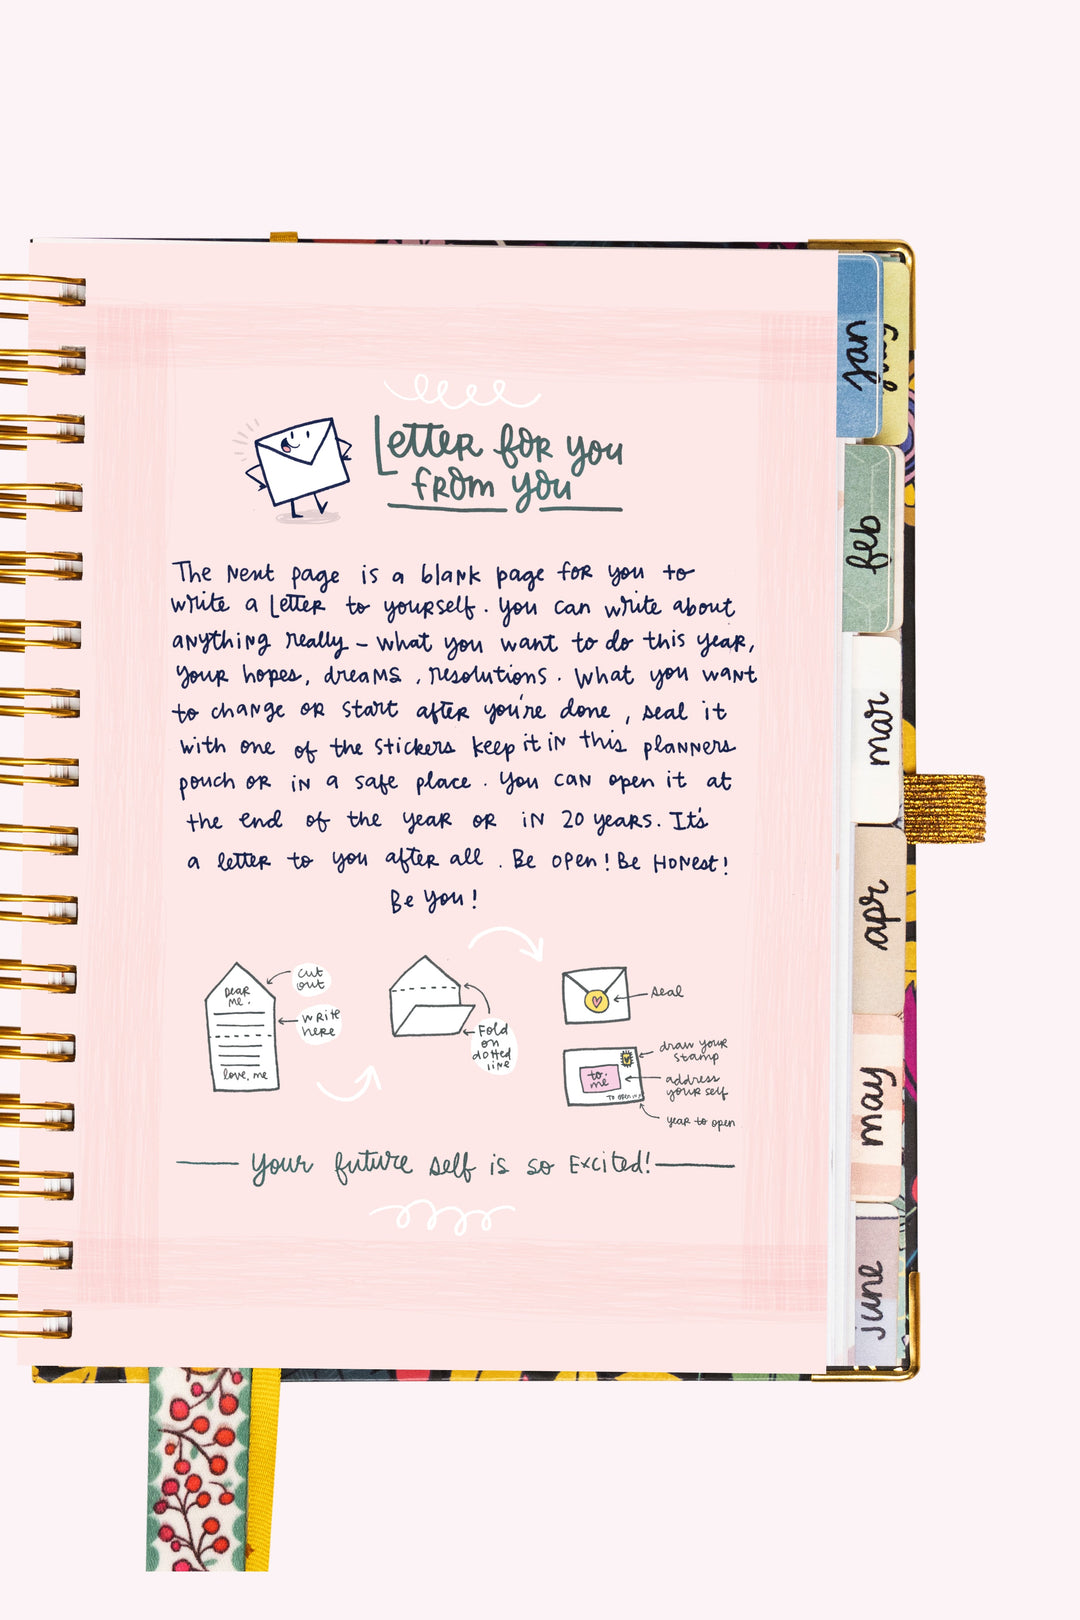 Letter for you
from you
The Next page is a blank page for you to
write a letter to yourself. You can write about
anything really - what you want to do this year,
your hopes, dreams, resolutions. What you want
to change or start after you're done, seal it
with one of the stickers keep it in this planners
pouch or in a safe place. You can open it at
the end of the year or in 20 years. It's
a letter to you after all. Be open! Be Honest!
Be You!
Dear
me.
love, me
cut
out
write
here
Fold
on
dotted
line
seal
to:
me
draw your
stamp
address
your self
year to open
Your future self is so Excited!
jan
feb
mar
apr
may
june